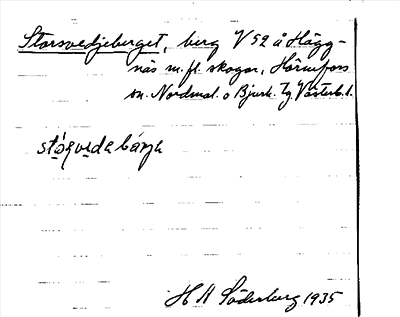 Storsvedjeberget, berg V 52 å Hägg-
näs m.fl. skogar, Hörnefors
sn. Nordmal. o Bjurh. Tg. Västerb. l.
H A Söderberg 1935